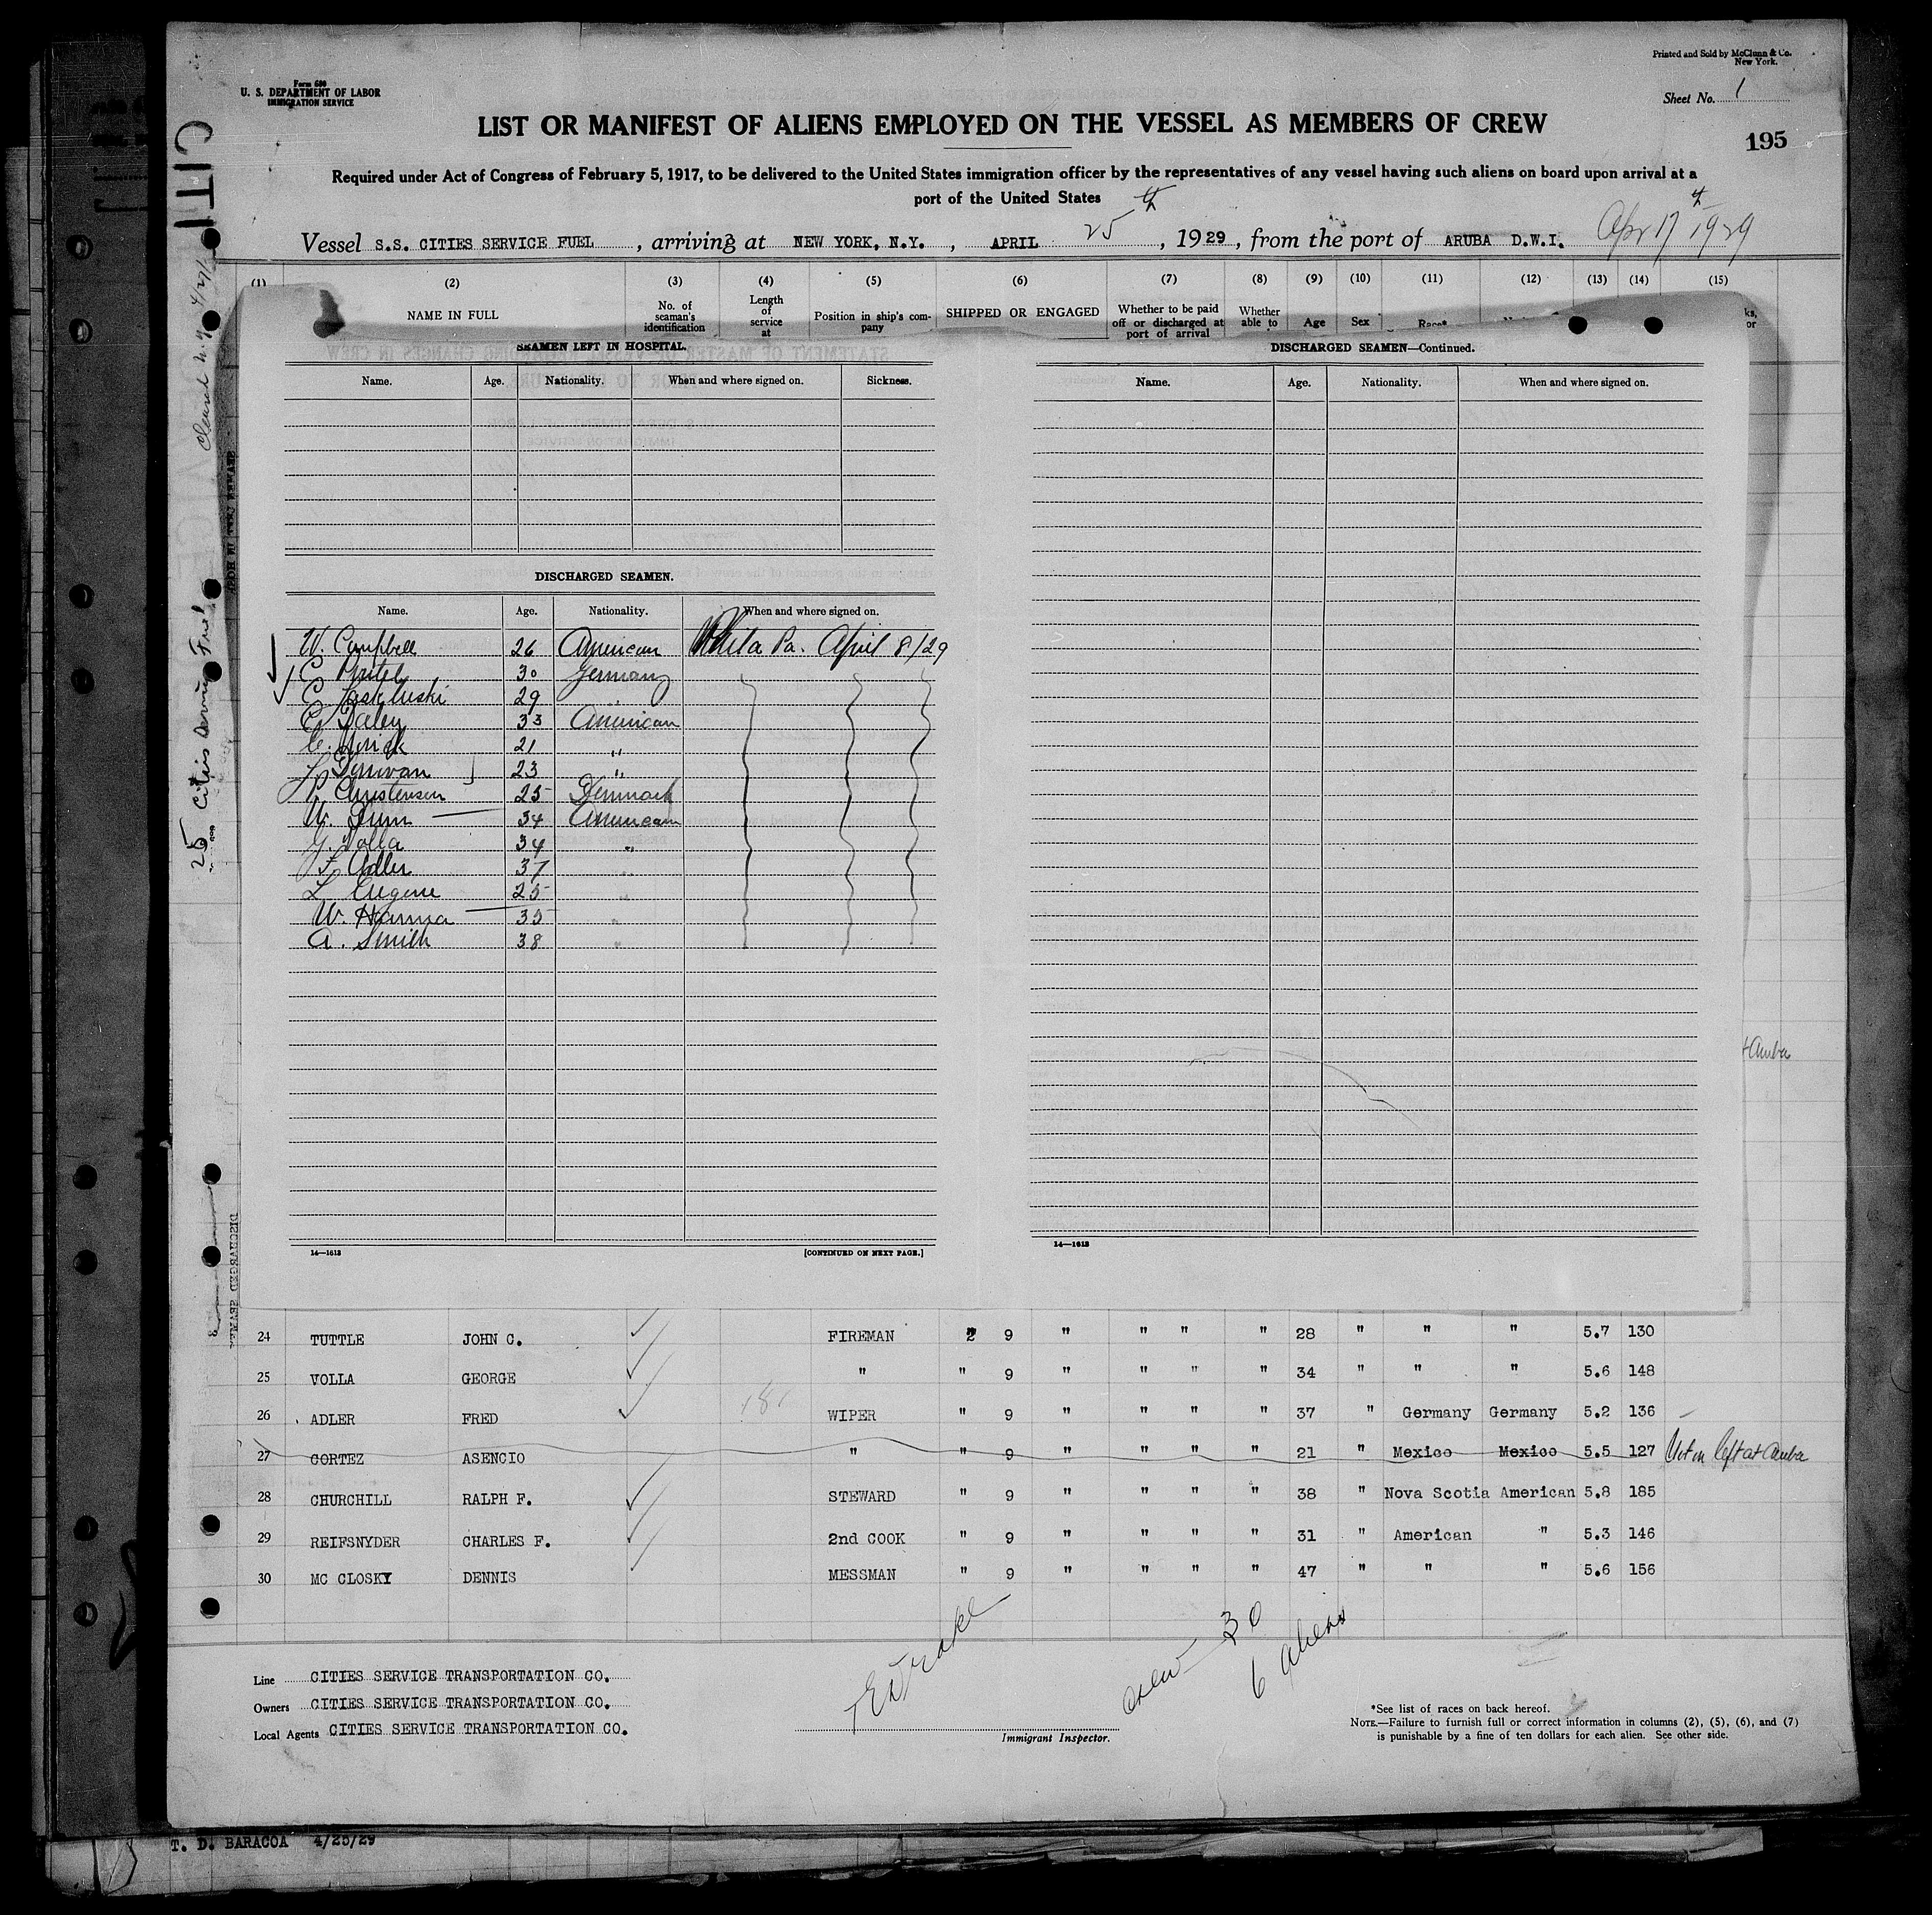 Printed and Sold by McClunn & Co.
New York.
Form 680
U. S. DEPARTMENT OF LABOR
IMMIGRATION SERVICE
Sheet No. 1
LIST OR MANIFEST OF ALIENS EMPLOYED ON THE VESSEL AS MEMBERS OF CREW
195
Required under Act of Congress of February 5, 1917, to be delivered to the United States immigration officer by the representatives of any vessel having such aliens on board upon arrival at a
port of the United States
Vessel S.S. CITIES SERVICE FUEL , arriving at NEW YORK, N.Y. , APRIL 25th , 1929 , from the port of ARUBA D.W.I. Apr 17th 1929
(1) (2) (3) (4) (5) (6) (7) (8) (9) (10) (11) (12) (13) (14) (15)
NAME IN FULL No. of seaman's identification Length of service at Position in ship's company SHIPPED OR ENGAGED Whether to be paid off or discharged at port of arrival Whether able to Age Sex Race*
SEAMEN LEFT IN HOSPITAL.
Name. Age. Nationality. When and where signed on. Sickness.
DISCHARGED SEAMEN.
Name. Age. Nationality. When and where signed on.
W. Campbell 26 American Phila Pa. April 8/29
30 Germany
29
C. Daley 33 American
21 "
23 "
P Christensen 25 Denmark
W. Dunn 34 American
G. Volla 34 "
F. Adler 37 "
L Eugene 25 "
W. Hanna 35 "
A. Smith 38 "
14—1613 [CONTINUED ON NEXT PAGE.]
DISCHARGED SEAMEN—Continued.
Name. Age. Nationality. When and where signed on.
14—1613
Aruba
24 TUTTLE JOHN C. FIREMAN 2 9 " " " " 28 " " " 5.7 130
25 VOLLA GEORGE " " 9 " " " " 34 " " " 5.6 148
26 ADLER FRED WIPER " 9 " " " " 37 " Germany Germany 5.2 136
27 CORTEZ ASENCIO " " 9 " " " " 21 " Mexico Mexico 5.5 127 left at Aruba
28 CHURCHILL RALPH F. STEWARD " 9 " " " " 38 " Nova Scotia American 5.8 185
29 REIFSNYDER CHARLES F. 2nd COOK " 9 " " " " 31 " American " 5.3 146
30 MC CLOSKY DENNIS MESSMAN " 9 " " " " 47 " " " 5.6 156
crew 30
6 aliens
Line CITIES SERVICE TRANSPORTATION CO.
Owners CITIES SERVICE TRANSPORTATION CO.
Local Agents CITIES SERVICE TRANSPORTATION CO.
Immigrant Inspector.
*See list of races on back hereof.
NOTE.—Failure to furnish full or correct information in columns (2), (5), (6), and (7)
is punishable by a fine of ten dollars for each alien. See other side.
T. D. BARACOA 4/25/29
CITI
25 Cities Service Fuel